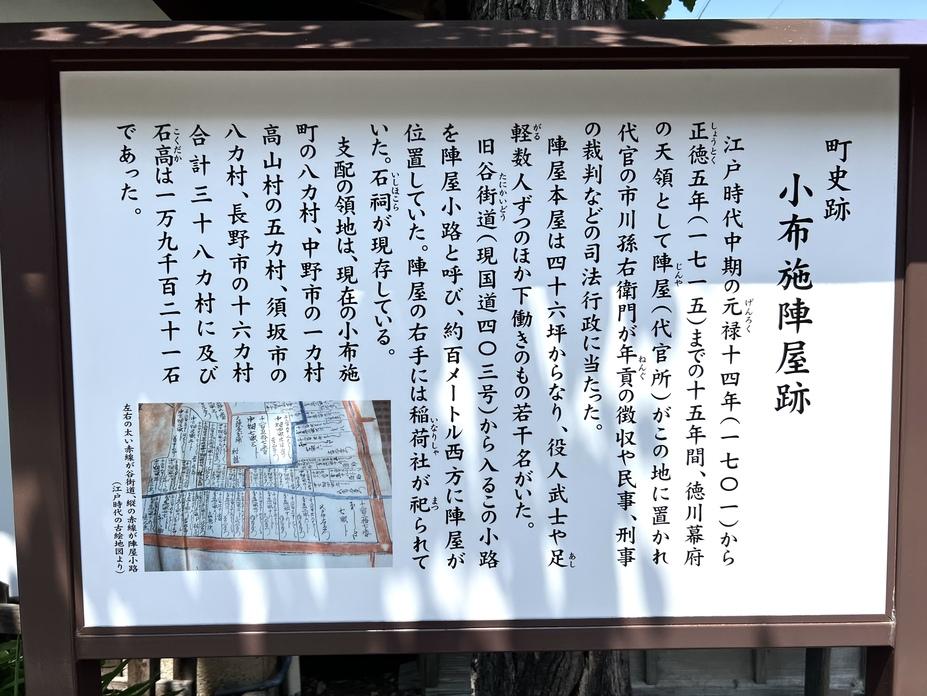 町史跡
小布施陣屋跡
江戸時代中期の元禄十四年(一七〇一)から
正徳五年(一七一五)までの十五年間、徳川幕府
の天領として陣屋(代官所)がこの地に置かれ
代官の市川孫右衛門が年貢の徴収や民事、刑事
の裁判などの司法行政に当たった。
陣屋本屋は四十六坪からなり、役人武士や足
軽数人ずつのほか下働きのもの若干名がいた。
旧谷街道(現国道四〇三号)から入るこの小路
を陣屋小路と呼び、約百メートル西方に陣屋が
位置していた。陣屋の右手には稲荷社が祀られて
いた。石祠が現存している。
支配の領地は、現在の小布施
町の八カ村、中野市の一カ村
高山村の五カ村、須坂市の
八カ村、長野市の十六カ村
合計三十八カ村に及び
石高は一万九千百二十一石
であった。
左右の太い赤線が谷街道、縦の赤線が陣屋小路
(江戸時代の古絵地図より)